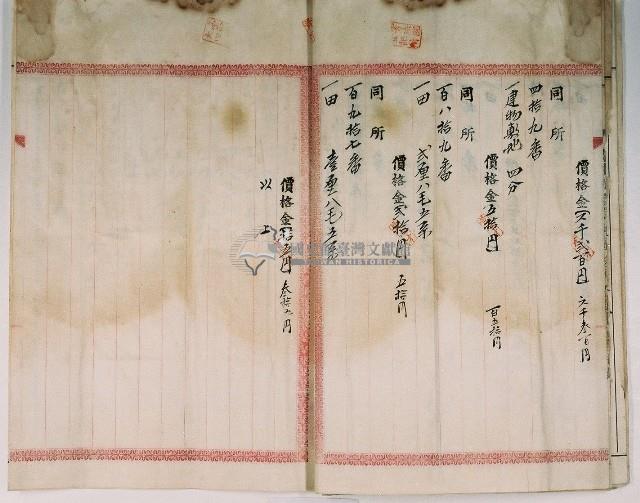 價格金六千弐百円 六千参百円
同所
四拾九番
一建物敷地 四分
價格金五拾円 百五拾円
同所
百八拾九番
一田 弐厘八毛五糸
價格金弐拾円 五拾円
同所
百九拾七番
一田 壹厘八毛五糸
價格金拾五円 参拾九円
以上
國史館臺灣文獻館
TAIWAN HISTORICA